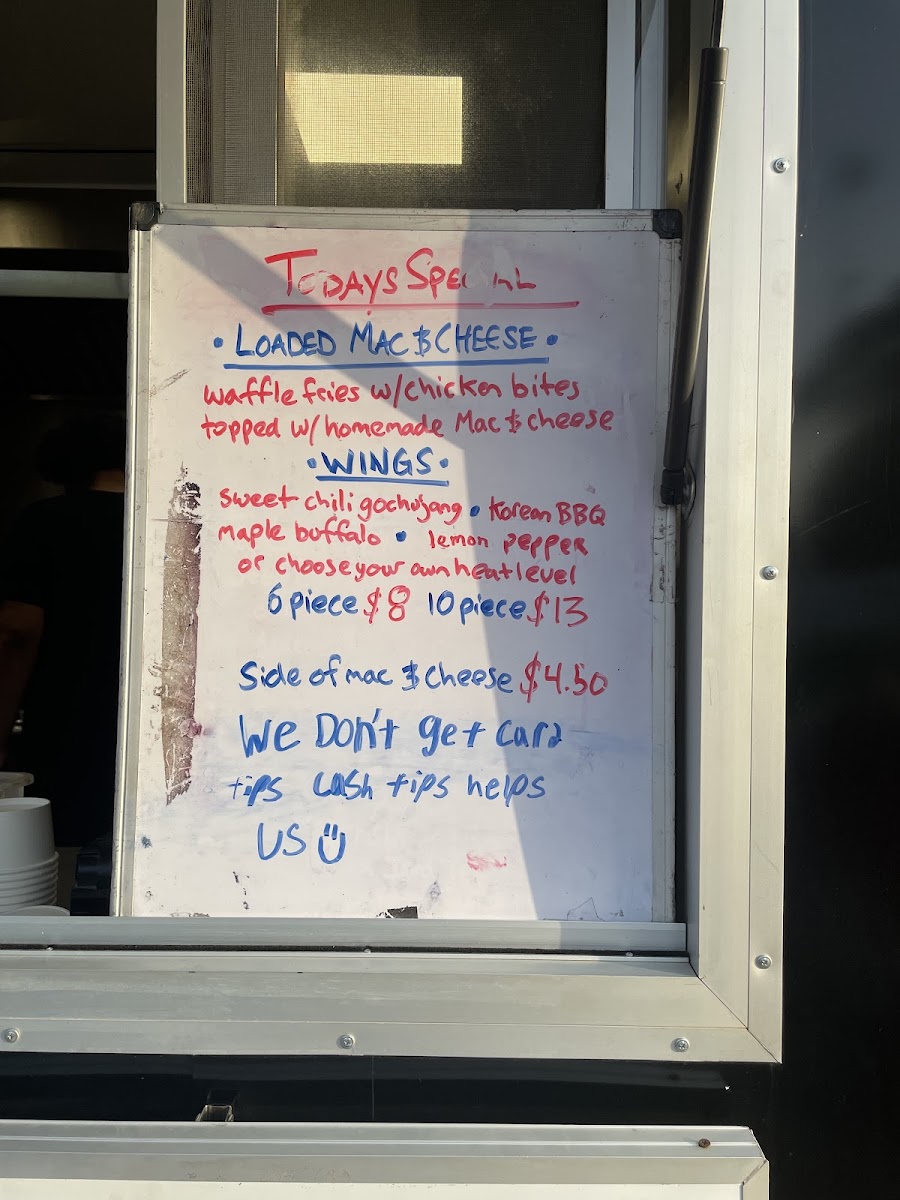 TODAYS SPECIAL
• LOADED MAC & CHEESE •
waffle fries w/chicken bites
topped w/ homemade Mac & cheese
• WINGS •
sweet chili gochujang • Korean BBQ
maple buffalo • lemon pepper
or choose your own heat level
6 piece $8 10 piece $13
Side of mac & cheese $4.50
We Don't get card
tips cash tips helps
US